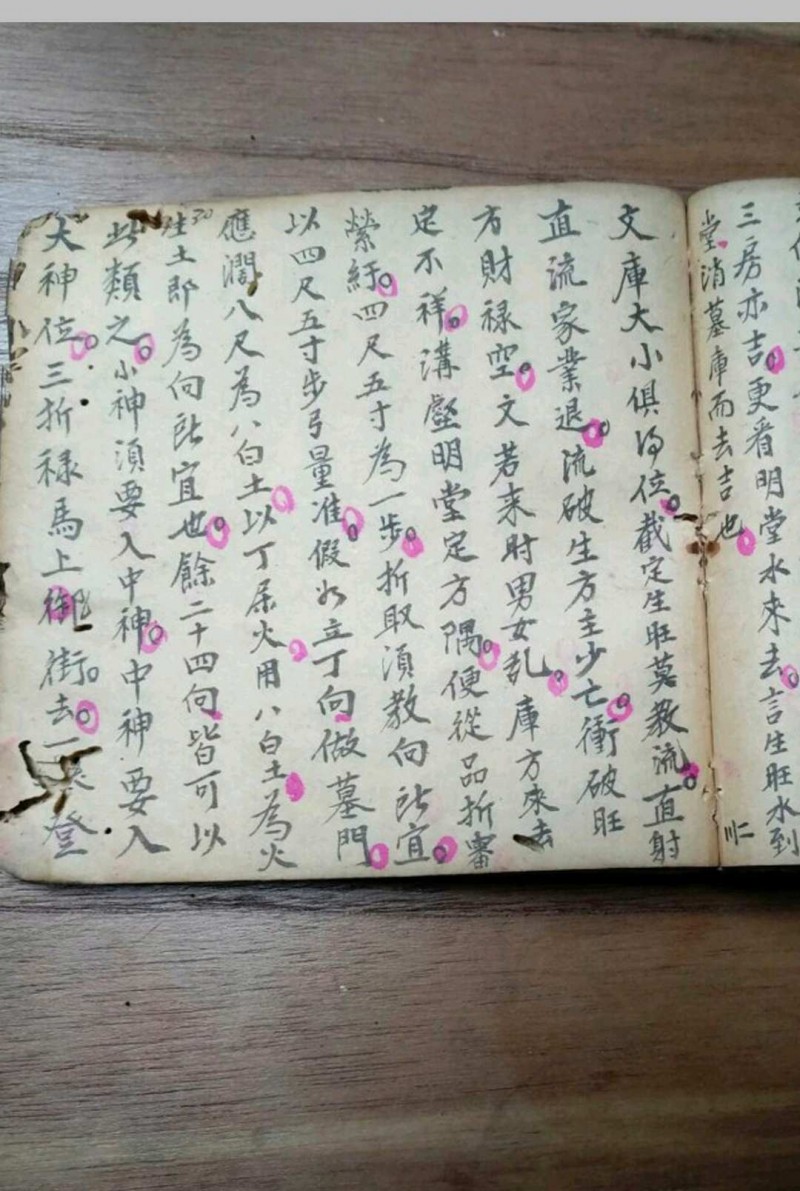 三房亦吉更看明堂水來去言生旺水到
堂消墓庫而去吉也
文庫大小俱得位截定生旺莫教流直射
直流家業退流破生方主少亡衝破旺
方財禄空文若来时男女乱庫方來去
定不祥溝壑明堂定方隅便從品折審
縈紆四尺五寸為一步折取須教向所宜
以四尺五寸步弓量准假如立丁向做墓門
應濶八尺為八白土以丁屬火用八白土為火
生土即為向所宜也餘二十四向皆可以
此類之小神須要入中神中神要入
大神位三折禄馬上御街去一 登